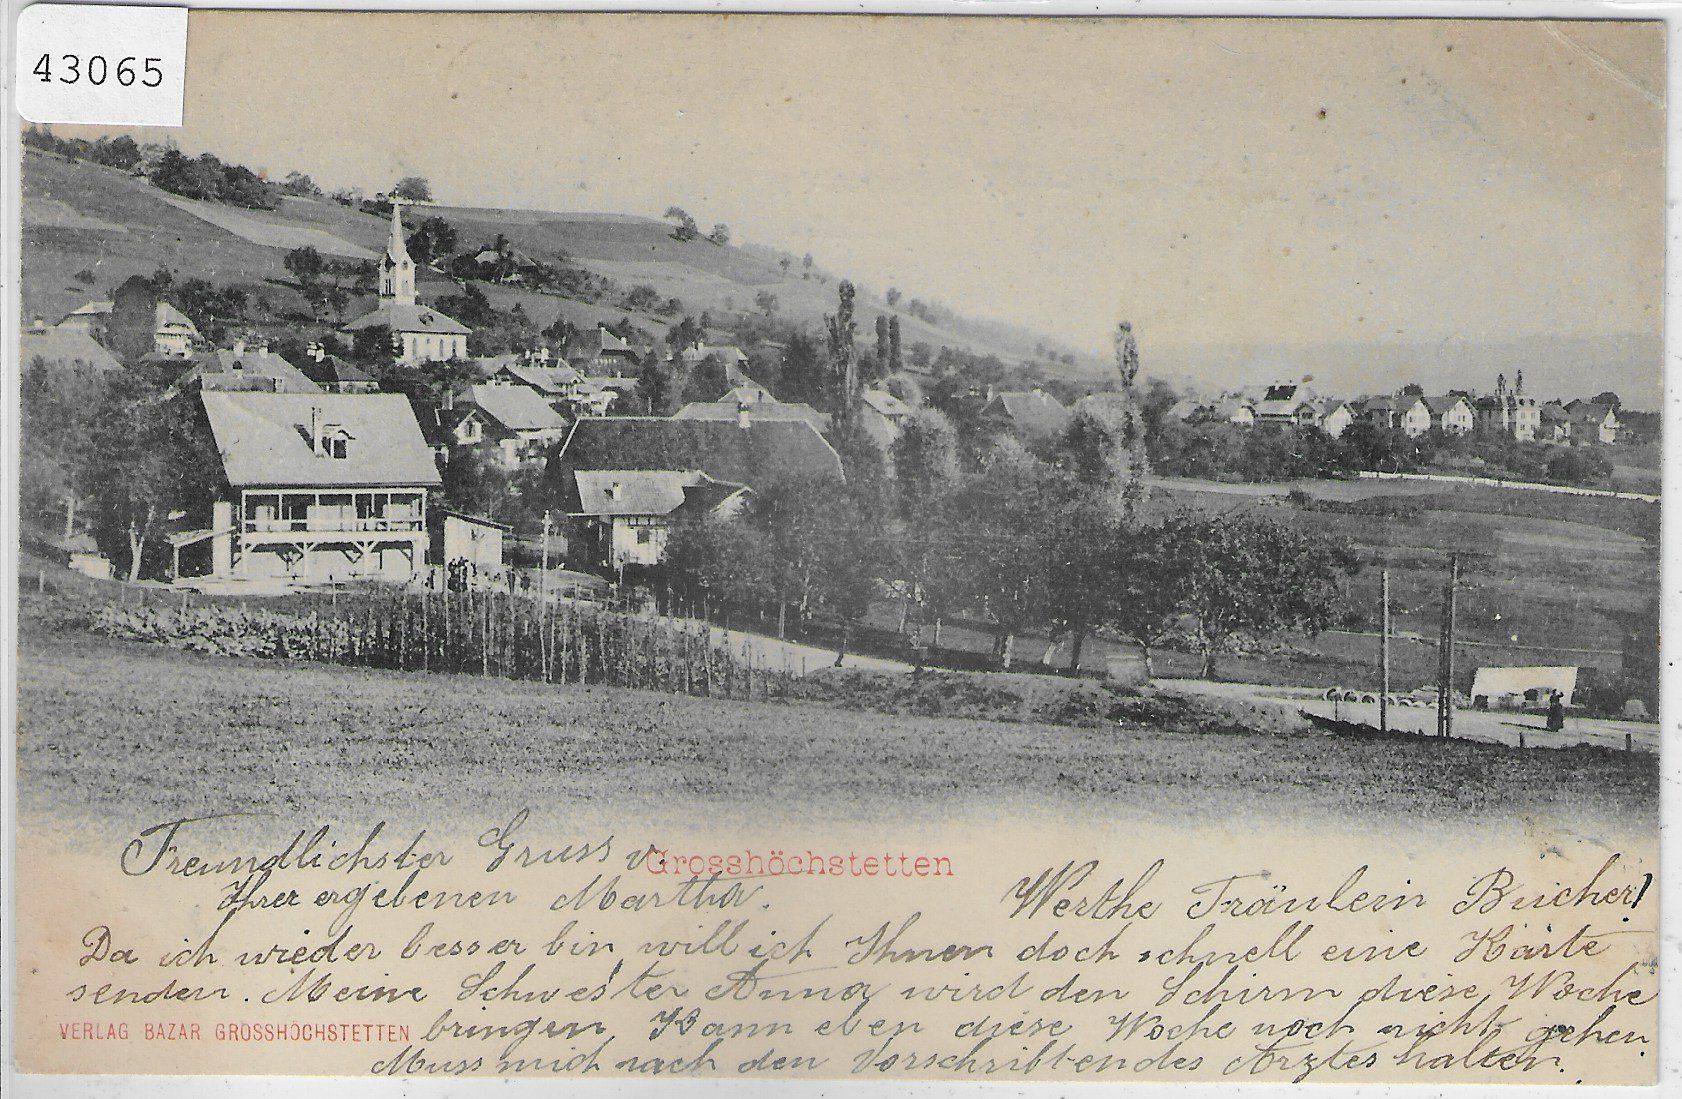 43065
Freundlichster Gruss v. Grosshöchstetten
Ihrer ergebenen Martha.
Werthe Fräulein Bucher!
Da ich wieder besser bin will ich Ihnen doch schnell eine Karte
senden. Meine Schwester Anna wird den Schirm diese Woche
VERLAG BAZAR GROSSHÖCHSTETTEN bringen, Kann eben diese Woche noch nicht gehen.
Muss mich nach den Vorschribtendes Arztes halten.